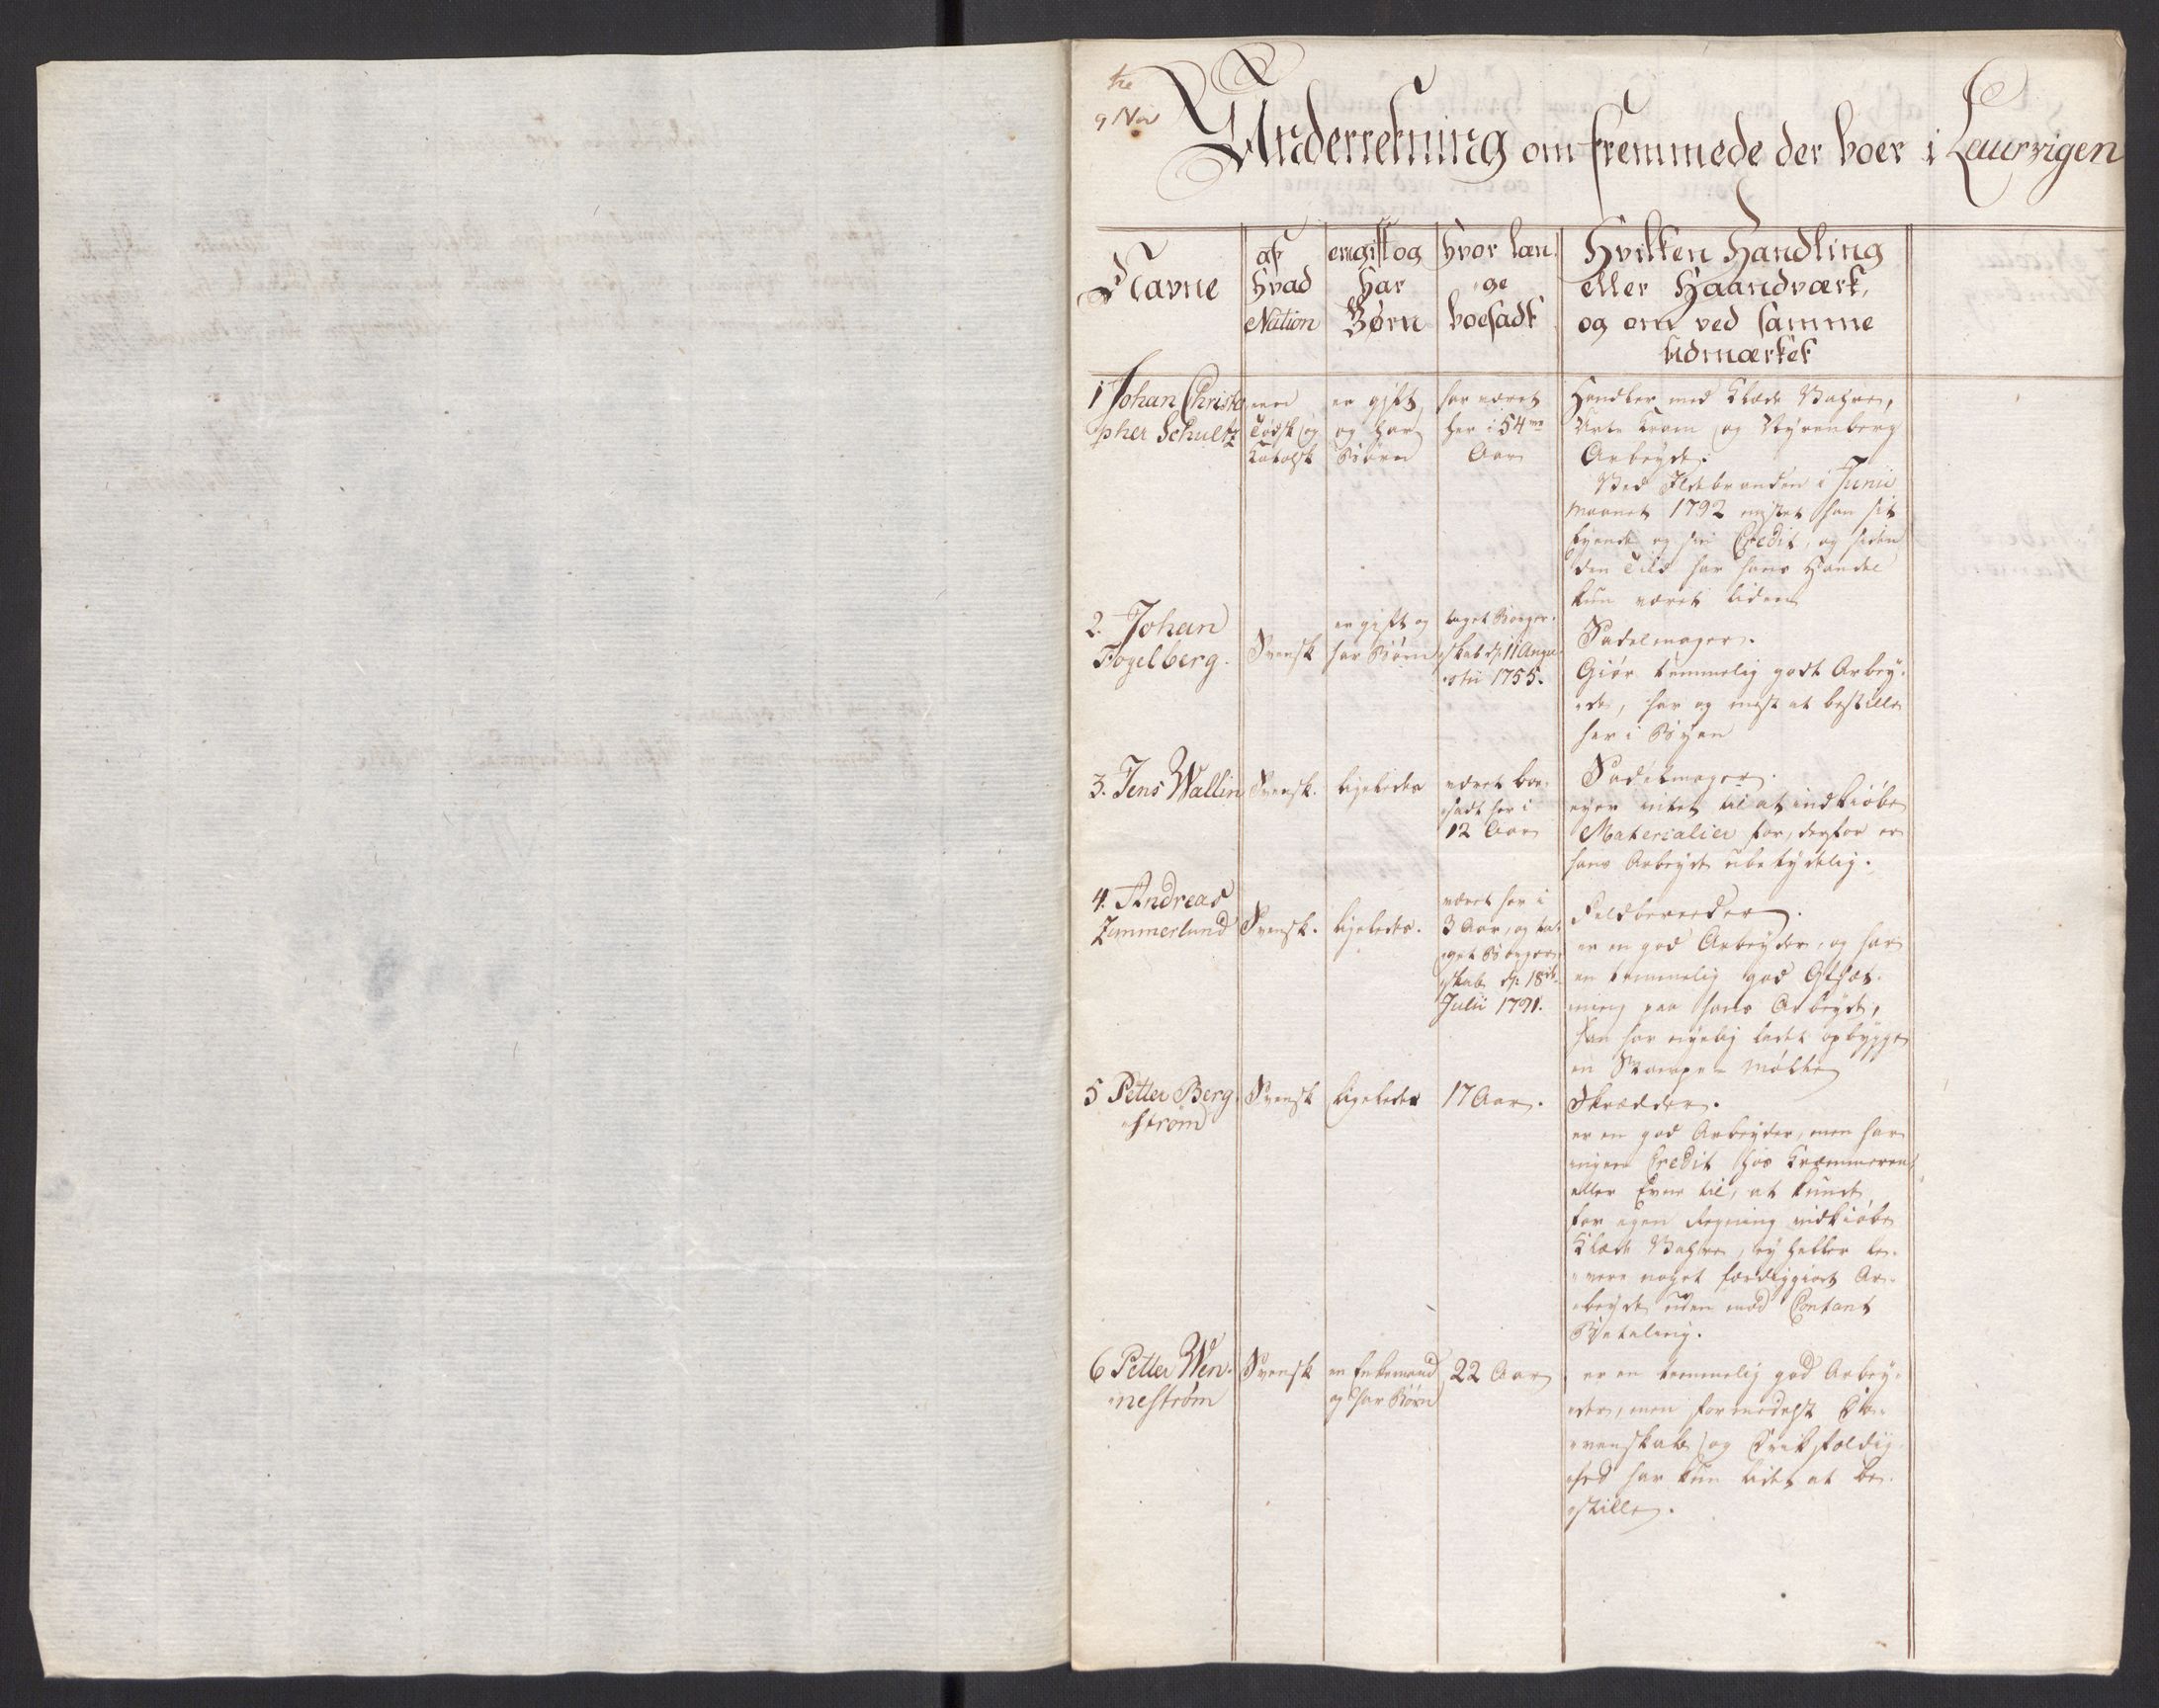 9 Nov
Underretning om fremmede der boer i Laurvigen
Navne
af
hvad
Nation
er gift og
har
Børn
hvor lan
ge
boesadt
Hvilken Handling
eller Haandværk,
og om ved samme
udmærket
1 Johan Christo
pher Schultz
een
Tydsk og
Catolsk
er gift
og har
Børn
har været
her i 54
Aar
Handler med Klæde Vahre,
Urte Kram og Nyrenberg
Arbeyde.
Ved Ildebranden i Junii
Maanet 1792 mistet han sit
Eyende og sin Credit, og siden
den Tiid har hans Handel
kun været liden
2. Johan
Fogelberg.
Svensk
er gift og
har Børn
taget Borger-
skab d. 11 Augu-
stii 1755.
Sadelmager.
Giør temmelig godt Arbey-
de, har og mest at bestille
her i Byen
3. Jens Wallin
Svensk.
ligeledes
været boe-
sadt her i
12 Aar
Sadelmager.
eyer intet til at indkiøbe
Materialier for, derfor er
hans Arbeyde ubetydelig.
4. Andreas
Zimmerlund
Svensk.
ligeledes.
været her i
3 Aar, og ta-
get Borger-
skab d. 18de
Julii 1791.
Feldbereeder.
er en god Arbeyder, og har
en temmelig god Afsæt-
ning paa hans Arbeyde,
han har nyelig ladet opbygge
en Stampe Mølle
5 Petter Berg-
strøm
Svensk
ligeledes
17 Aar.
Skrædder.
er en god Arbeyder, men har
ingen Credit hos Kræmmeren
eller Evne til, at kunde
for egen Regning indkiøbe
Klæde Vahre, ey heller le-
vere noget færdiggiort Ar-
beyde uden mod Contant
Betaling.
6 Petter Wen-
nestrøm
Svensk
en Enkemand
og har Børn
22 Aar
er en temmelig god Arbey-
der, men formedelst
og Drikfældig-
hed har kun lidet at be-
stille.